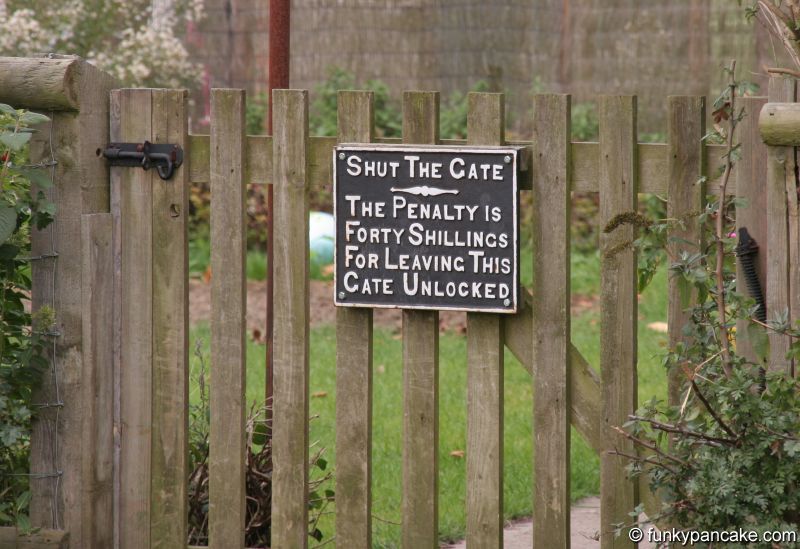 Shut The Gate
The Penalty is
Forty Shillings
For Leaving This
Gate Unlocked
© funkypancake.com